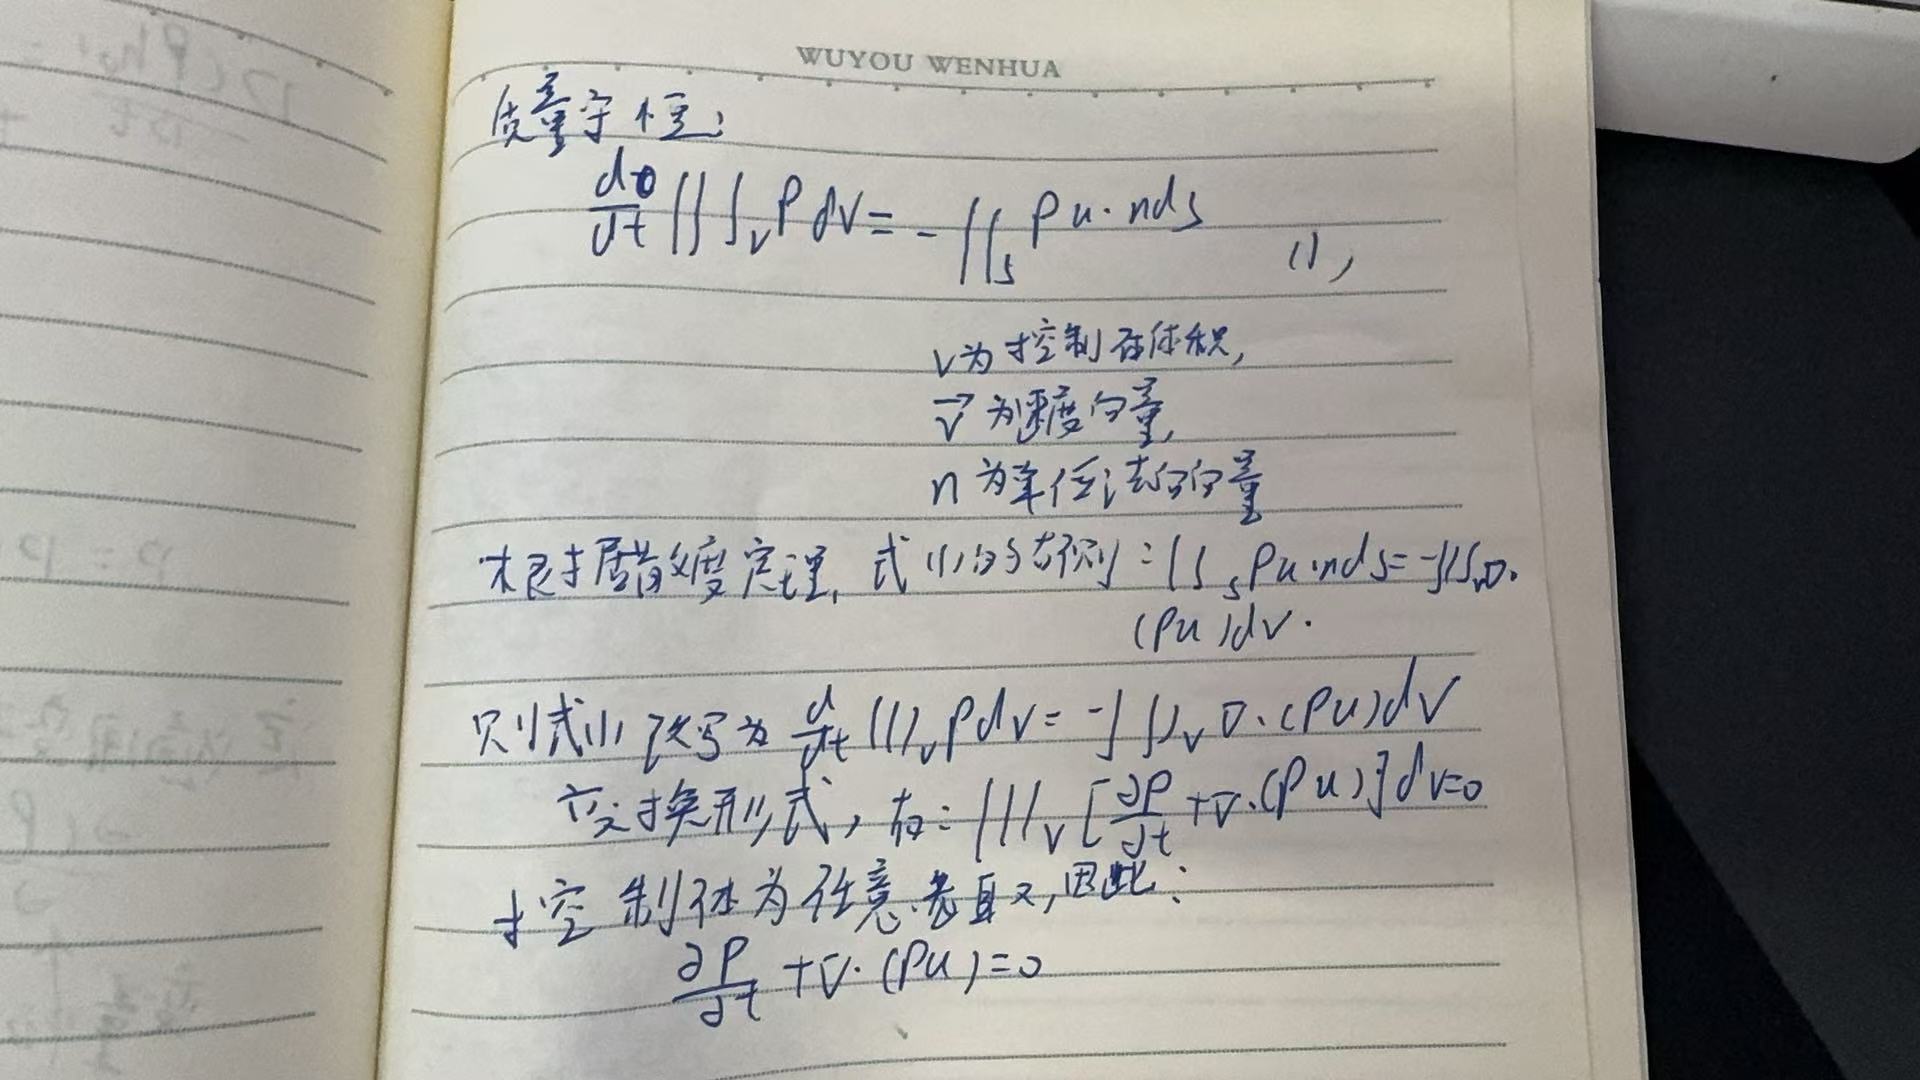 WUYOU WENHUA
质量守恒:
d/dt ∭_V ρ dV = - ∬_S ρu·n ds (1),
V为控制体体积,
v⃗ 为速度向量,
n 为单位法向向量
根据散度定理, 式(1)的右侧: ∬_S ρu·nds = -∭_V ∇·
(ρu)dV.
则式(1)改写为 d/dt ∭_V ρdV = -∭_V ∇·(ρu)dV
变换形式, 故: ∭_V [∂ρ/∂t + ∇·(ρu)]dV=0
控制体为任意选取, 因此:
∂ρ/∂t + ∇·(ρu) = 0